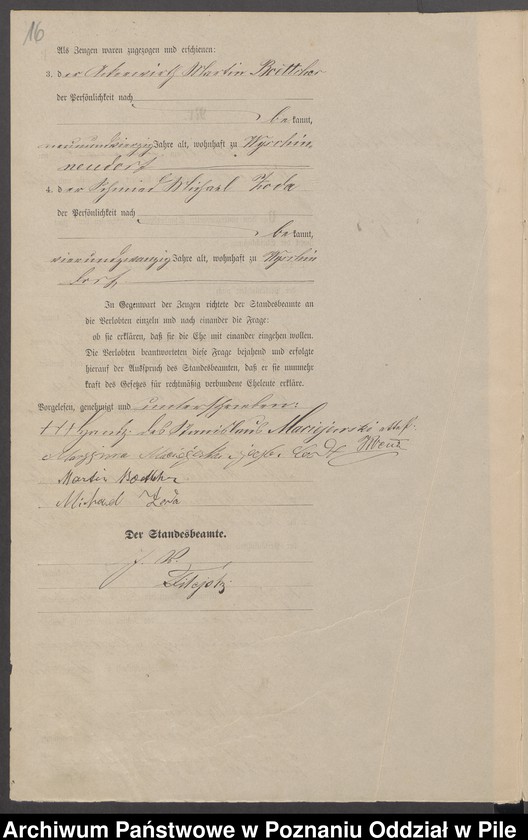 16
Als Zeugen waren zugezogen und erschienen:
3. der Martin Böttcher
der Persönlichkeit nach
bekannt,
neunundvierzig Jahre alt, wohnhaft zu Wyschin,
neudorf
4. der Schmied Michael Zoda
der Persönlichkeit nach
bekannt,
vierundzwanzig Jahre alt, wohnhaft zu Wyschin
dorf
In Gegenwart der Zeugen richtete der Standesbeamte an
die Verlobten einzeln und nach einander die Frage:
ob sie erklären, daß sie die Ehe mit einander eingehen wollen.
Die Verlobten beantworteten diese Frage bejahend und erfolgte
hierauf der Ausspruch des Standesbeamten, daß er sie nunmehr
kraft des Gesetzes für rechtmäßig verbundene Eheleute erkläre.
Vorgelesen, genehmigt und unterschrieben:
+++ des Stanislaus Maciejewski
Martin
Michael Zoda
Der Standesbeamte.
J. V.
Archiwum Państwowe w Poznaniu Oddział w Pile